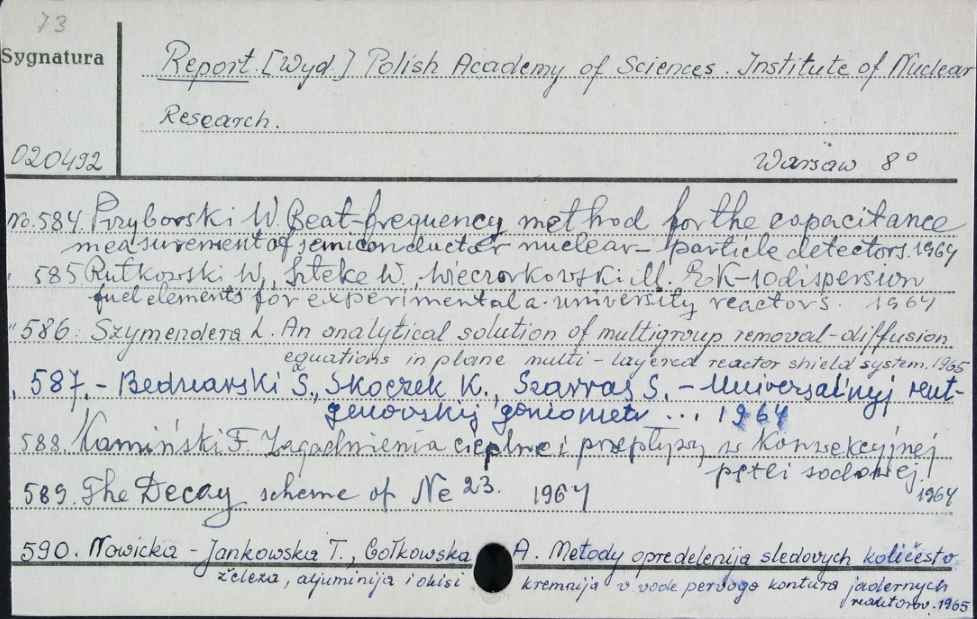 73
Sygnatura
Report. [Wyd.] Polish Academy of Sciences. Institute of Nuclear
Research.
020492
Warsaw 8°
No. 584. Przyborski W. Beat-frequency method for the capacitance
measurement of semiconductor nuclear-particle detectors. 1964
" 585 Rutkowski W., Szteke W., Wieczorkowski M. EK-10 dispersion
fuel elements for experimental a. university reactors. 1964
" 586. Szymendera L. An analytical solution of multigroup removal-diffusion
equations in plane multi-layered reactor shield system. 1965
" 587. - Bednarski S., Skoczek K., Szarras S. - Universal'nyj rent-
genovskij goniometr ... 1964
588. Kamiński F. Zagadnienia cieplne i przepływy w konwekcyjnej
pętli sodowej. 1964
589. The Decay scheme of Ne 23. 1964
590. Nowicka-Jankowska T., Gołkowska A. Metody opredelenija sledovych količestv
železa, aljuminija i okisi kremnija v vode pervogo kontura jadernych
reaktorov. 1965